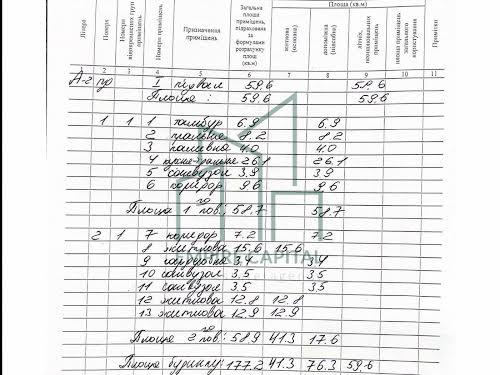 Площа (кв.м)
Літера
Поверх
Номери відокремлених груп приміщень
Номери приміщень
Призначення приміщень
Загальна площа приміщень, підрахована за формулами розрахунку площ (кв.м)
житлова (основна)
допоміжна (підсобна)
літніх, неопалювальних приміщень
площа приміщень загального користування
Примітки
1 2 3 4 5 6 7 8 9 10 11
А-2 пд I підвал 59.6 59.6
Площа: 59.6 59.6
1 1 1 тамбур 6.9 6.9
2 пральня 8.2 8.2
3 паливна 4.0 4.0
4 кухня-їдальня 26.1 26.1
5 санвузол 3.9 3.9
6 коридор 9.6 9.6
Площа 1 го пов: 58.7 58.7
2 1 7 коридор 7.2 7.2
8 житлова 15.6 15.6
9 гардеробна 3.4 3.4
10 санвузол 3.5 3.5
11 санвузол 3.5 3.5
12 житлова 12.8 12.8
13 житлова 12.9 12.9
Площа 2 го пов: 58.9 41.3 17.6
Площа будинку: 177.2 41.3 76.3 59.6
CAPITAL